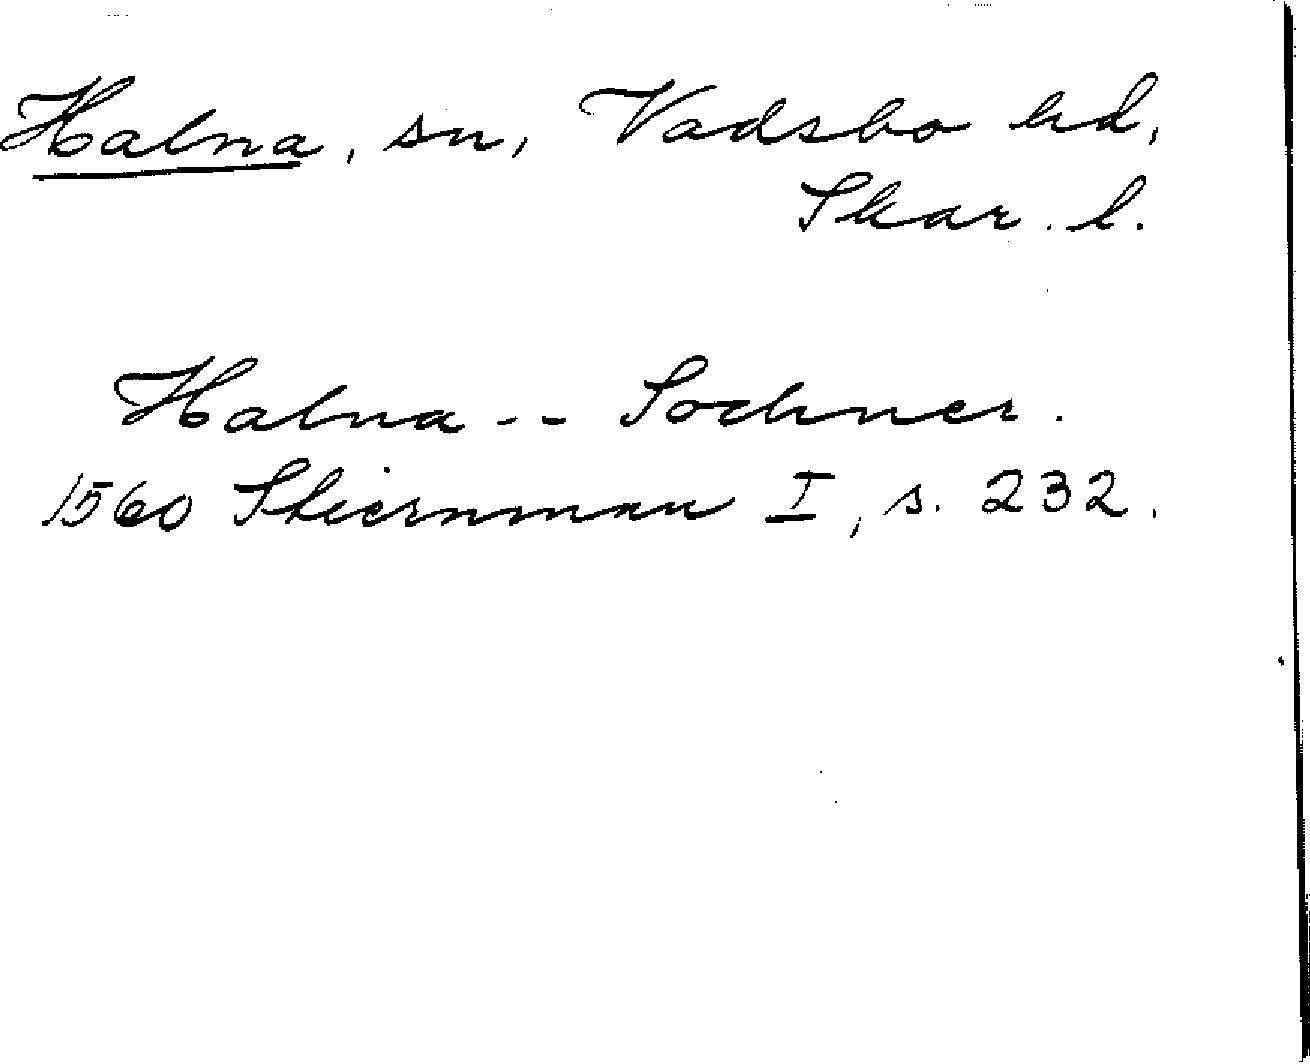 Halna, sn, Vadsbo hd,
Skar. l.
Halna -- Sochner.
1560 Stiernman I, s. 232.